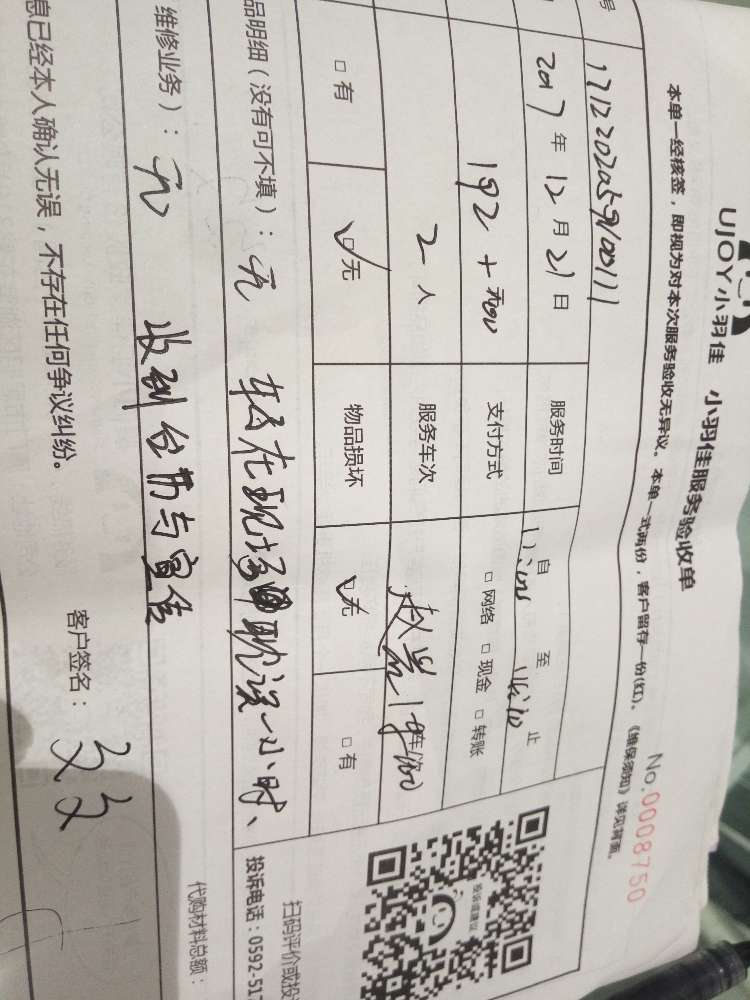 UJOY小羽佳 小羽佳服务验收单
No.0008750
本单一经核签，即视为对本次服务验收无异议。本单一式两份，客户留存一份(红)。《维保须知》详见背面。
号
2017年12月21日 服务时间 自 至 止
192+ 支付方式 □网络 □现金 □转账
2人 服务车次
□有 ☑无 物品损坏 ☑无 □有
品明细（没有可不填）：无 在现场 误一小时、
维修业务）：无 收到台历与宣传
代购材料总额：
扫码评价或投
投诉电话：0592-517
投诉或建议
息已经本人确认无误，不存在任何争议纠纷。 客户签名：